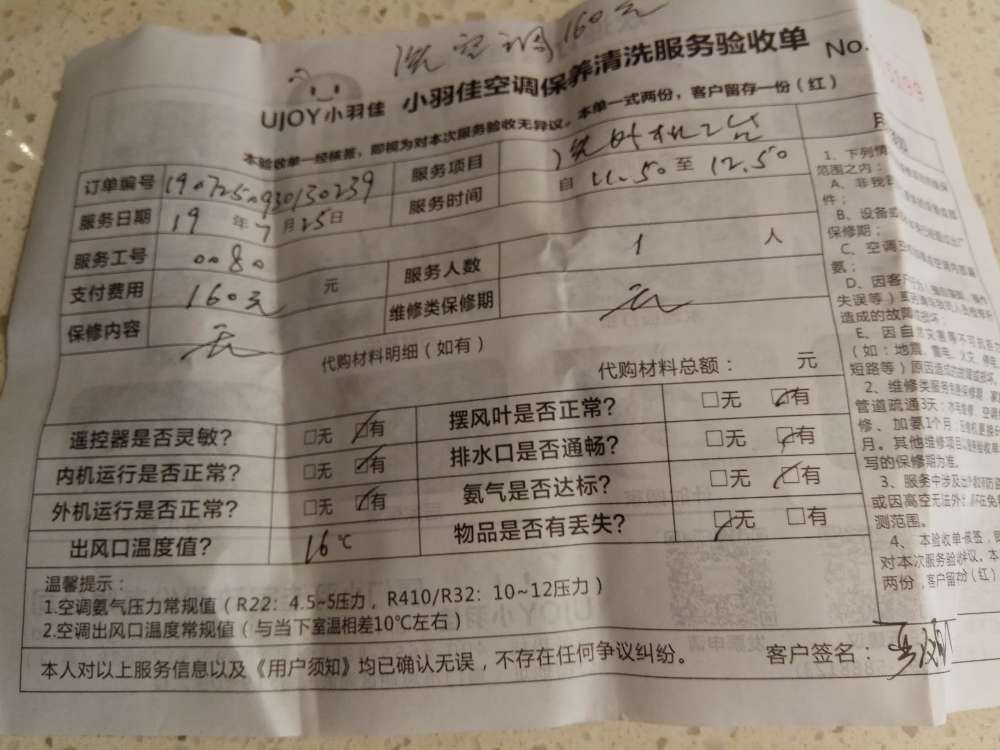 洗空调160元
UJOY小羽佳 小羽佳空调保养清洗服务验收单 No.
本验收单一经核签，即视为对本次服务验收无异议。本单一式两份，客户留存一份（红）
订单编号 1907250930130239 服务项目
服务日期 19 年 7 月 25 日 服务时间 自 11.50 至 12.50
服务工号 0080 服务人数 1 人
支付费用 160元 元 维修类保修期 无
保修内容 无
代购材料明细（如有）
代购材料总额： 元
遥控器是否灵敏? □无 □有 摆风叶是否正常? □无 □有
内机运行是否正常? □无 □有 排水口是否通畅? □无 □有
外机运行是否正常? □无 □有 氨气是否达标? □无 □有
出风口温度值? 16 ℃ 物品是否有丢失? □无 □有
温馨提示：
1.空调氨气压力常规值（R22：4.5~5压力，R410/R32：10~12压力）
2.空调出风口温度常规值（与当下室温相差10℃左右）
本人对以上服务信息以及《用户须知》均已确认无误，不存在任何争议纠纷。 客户签名：
1、下列情
范围之内：
A、非我
件；
B、设备或
保修期；
C、空调
氨；
D、因客
失误等）
造成的故障或损坏；
E、因自然灾害等不可抗
（如：地震、雷电、火灾、
短路等）原因造成的故障或损坏。
2、维修类服务
管道疏通3天；
修、加氨1个月；
月。其他维修项目以服务验收单
写的保修期为准。
3、服务中涉及
或因高空无法
测范围。
4、本验收单一经核签，即
对本次服务验收无异议。本
两份，客户留存一份（红）